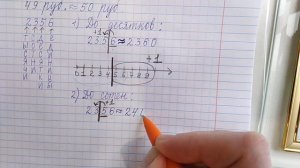 49 руб. ≈ 50 руб.
2356 1) До десятков:
+1
2356 ≈ 2360
+1
0 1 2 3 4 5 6 7 8 9
2) До сотен:
+1
2356 ≈ 241